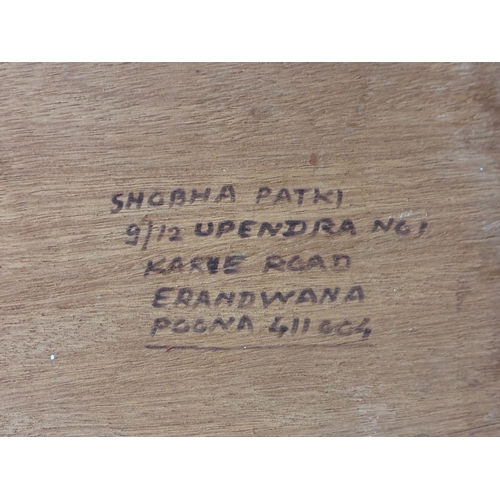 SHOBHA PATKI.
9/12 UPENDRA NG,
KARVE ROAD
ERANDWANA
POONA 411004